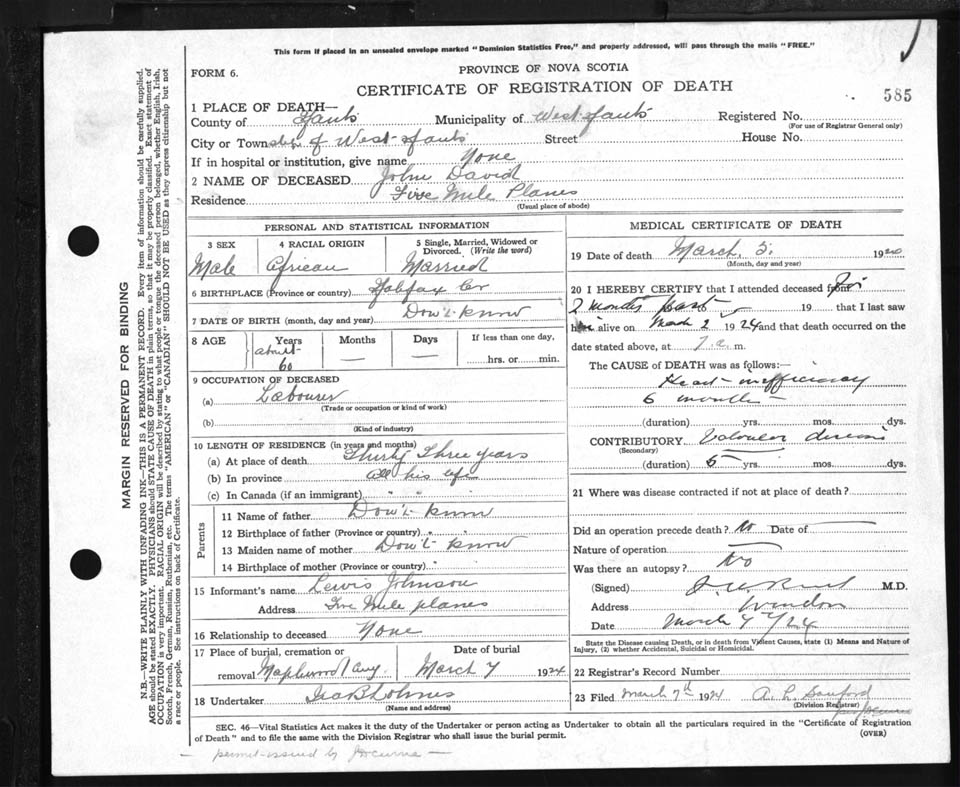 This form if placed in an unsealed envelope marked "Dominion Statistics Free," and properly addressed, will pass through the mails "FREE."
FORM 6.
PROVINCE OF NOVA SCOTIA
CERTIFICATE OF REGISTRATION OF DEATH
585
1 PLACE OF DEATH—
County of Hants Municipality of West Hants Registered No.
(For use of Registrar General only)
City or Town of West Hants Street House No.
If in hospital or institution, give name None
2 NAME OF DECEASED John David
Residence Five Mile Planes
(Usual place of abode)
PERSONAL AND STATISTICAL INFORMATION
3 SEX 4 RACIAL ORIGIN 5 Single, Married, Widowed or Divorced. (Write the word)
Male African Married
6 BIRTHPLACE (Province or country) Halifax Co
7 DATE OF BIRTH (month, day and year) Don't know
8 AGE Years Months Days If less than one day,
about 60 — — hrs. or min.
9 OCCUPATION OF DECEASED
(a) Labourer
(Trade or occupation or kind of work)
(b)
(Kind of industry)
10 LENGTH OF RESIDENCE (in years and months)
(a) At place of death Thirty Three years
(b) In province all his life
(c) In Canada (if an immigrant) " " "
Parents
11 Name of father Don't know
12 Birthplace of father (Province or country) "
13 Maiden name of mother Don't know
14 Birthplace of mother (Province or country) "
15 Informant's name Lewis Johnson
Address Five Mile planes
16 Relationship to deceased None
17 Place of burial, cremation or removal Date of burial
Maplewood March 7 1924
18 Undertaker Ira B Holmes
(Name and address)
MEDICAL CERTIFICATE OF DEATH
19 Date of death March, 5. 19
(Month, day and year)
20 I HEREBY CERTIFY that I attended deceased for
2 months past 19 that I last saw
him alive on March 2 1924 and that death occurred on
date stated above, at 7 a. m.
The CAUSE of DEATH was as follows:—
Heart inefficiency
6 months —
(duration) yrs. mos. dys.
CONTRIBUTORY Valvular disease
(Secondary)
(duration) 5 yrs. mos. dys.
21 Where was disease contracted if not at place of death?
Did an operation precede death? No Date of
Nature of operation
Was there an autopsy? No
(Signed) M.D.
Address Windsor
Date March 7/24
State the Disease causing Death, or in death from Violent Causes, state (1) Means and Nature of Injury, (2) whether Accidental, Suicidal or Homicidal.
22 Registrar's Record Number
23 Filed March 7th 1924 A. L. Sanford
(Division Registrar)
SEC. 46—Vital Statistics Act makes it the duty of the Undertaker or person acting as Undertaker to obtain all the particulars required in the "Certificate of Registration
of Death" and to file the same with the Division Registrar who shall issue the burial permit.
(OVER)
— permit issued by
MARGIN RESERVED FOR BINDING
N.B.—WRITE PLAINLY WITH UNFADING INK—THIS IS A PERMANENT RECORD. Every item of information should be carefully supplied.
AGE should be stated EXACTLY. PHYSICIANS should STATE CAUSE OF DEATH in plain terms, so that it may be properly classified. Exact statement of
OCCUPATION is very important. RACIAL ORIGIN will be described by stating to what people or tongue the deceased person belonged, whether English, Irish,
Scotch, French, German, Russian, Ruthenian, etc. The terms "AMERICAN" or "CANADIAN" SHOULD NOT BE USED as they express citizenship but not
a race or people. See instructions on back of Certificate.